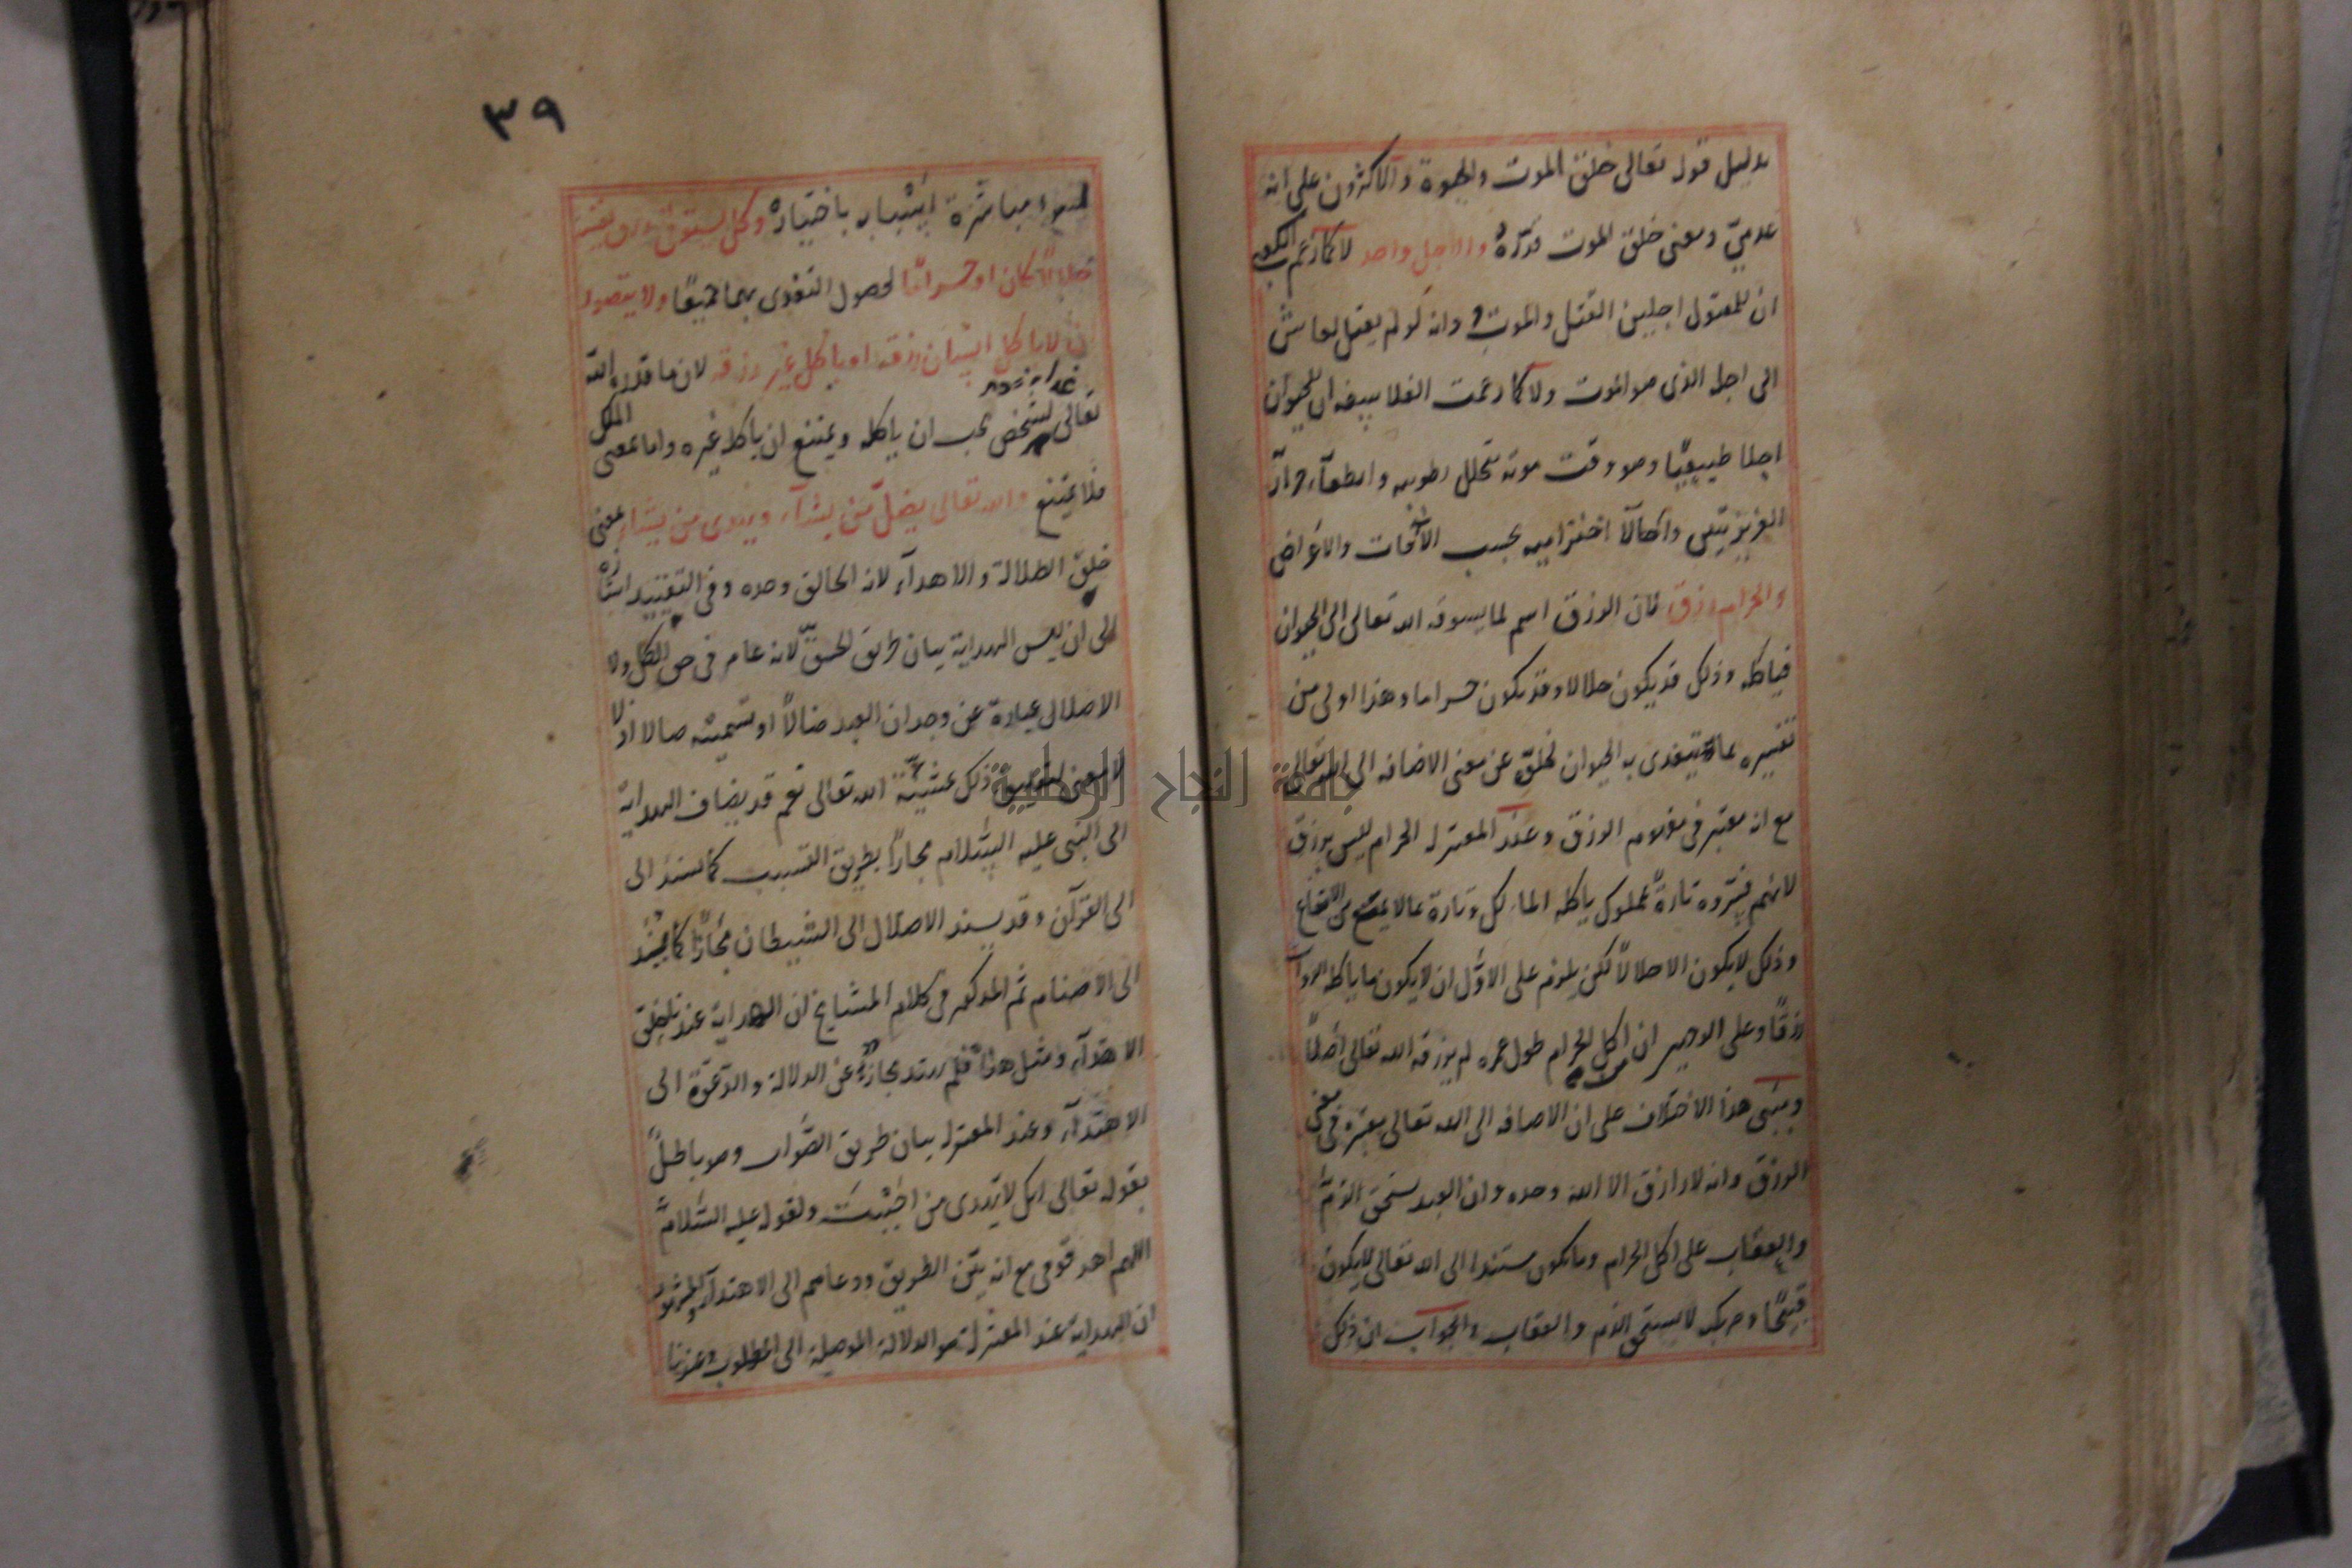 بدليل قوله تعالى خلق الموت والحيوة والاكثرون على انه
عدمى ومعنى خلق الموت قدره والاجل واحد لا كما زعم الكعبى
ان للمقتول اجلين القتل والموت وانه لو لم يقتل لعاش
الى اجله الذى هو الموت ولا كما زعمت الفلاسفه ان للحيوان
اجلا طبيعيا وهو وقت موته بتحلل رطوبته وانطفآء حرارته
الغريزيتين واجالآ اخترامية بحسب الآفات والامراض
والحرام رزق لان الرزق اسم لما يسوقه الله تعالى الى الحيوان
فياكله وذلك قد يكون حلالا وقد يكون حراما وهذا اولى من
تفسيره بما يتغذى به الحيوان لخلوه عن معنى الاضافه الى الله تعالى
مع انه معتبر فى مفهوم الرزق وعند المعتزله الحرام ليس برزق
لانهم فسروه تارة بمملوك ياكله المالك وتارة بما لا يمنع من الانتفاع
وذلك لا يكون الا حلالا لكن يلزم على الاول ان لا يكون ما ياكله الدواب
رزقا وعلى الوجهين ان من اكل الحرام طول عمره لم يرزقه الله تعالى اصلا
ومبنى هذا الاختلاف على ان الاضافه الى الله تعالى معتبرة فى معنى
الرزق وانه لا رازق الا الله وحده وان العبد يستحق الذم
والعقاب على اكل الحرام وما يكون مستندا الى الله تعالى لا يكون
قبيحا ومرتكبه لا يستحق الذم والعقاب والجواب ان ذلك
٣٩
لسوء مباشرة اسبابه باختياره وكل يستوفى رزق نفسه
حلالا كان او حراما لحصول التغذى بهما جميعا ولا يتصور
ان لا ياكل انسان رزقه او ياكل غيره رزقه لان ما قدره الله
تعالى لشخص يجب ان ياكله ويمتنع ان ياكله غيره واما بمعنى الملك
فلا يمتنع والله تعالى يضل من يشآء ويهدى من يشآء بمعنى
خلق الضلالة والاهتدآء لانه الخالق وحده وفى التقييد اشارة
الى ان ليس الهداية بيان طريق الحق لانه عام فى حق الكل ولا
الاضلال عبارة عن وجدان العبد ضالا او تسميته ضالا اذ لا
لا معنى لتعليق ذلك بمشية الله تعالى نعم قد يضاف الهداية
الى النبى عليه السلام مجازا بطريق التسبب كما يسند الى
الى القرآن وقد يسند الاضلال الى الشيطان مجازا كما يسند
الى الاصنام ثم المذكور فى كلام المشايخ ان الهداية عندنا خلق
الاهتدآء ومثل هداه فلم يهتد مجاز عن الدلالة والدعوة الى
الاهتدآء وعند المعتزله بيان طريق الصواب وهو باطل
بقوله تعالى انك لا تهدى من احببت ولقوله عليه السلام
اللهم اهد قومى مع انه بين الطريق ودعاهم الى الاهتدآء والمشهور
ان الهداية عند المعتزلة هو الدلالة الموصلة الى المطلوب وعندنا
جامعة النجاح الوطنية